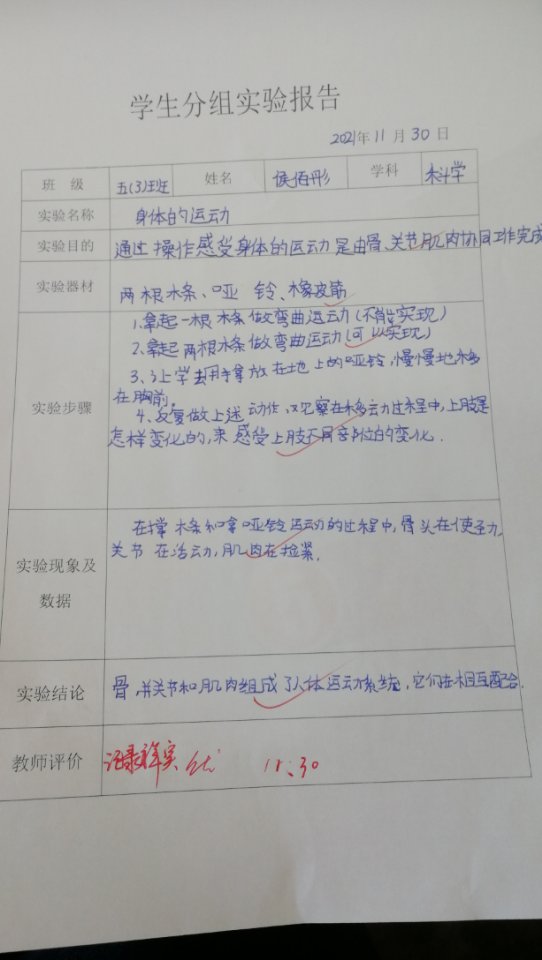 学生分组实验报告
2021年11月30日
班 级 五(3)班 姓名 侯佰彤 学科 科学
实验名称 身体的运动
实验目的 通过操作感受身体的运动是由骨、关节肌肉协同工作完成
实验器材 两根木条、哑铃、橡皮筋
实验步骤
1、拿起一根木条做弯曲运动(不能实现)
2、拿起两根木条做弯曲运动(可以实现)
3、让学去用手拿放在地上的哑铃,慢慢地移
在胸前。
4、反复做上述动作,观察在移动过程中,上肢是
怎样变化的,来感受上肢不同部位的变化.
实验现象及
数据
在撑木条和拿哑铃运动的过程中,骨头在使劲,
关节在活动,肌肉在捡紧.
实验结论 骨,关节和肌肉组成了人体运动系统,它们在相互配合.
教师评价 记录详实 优 11.30